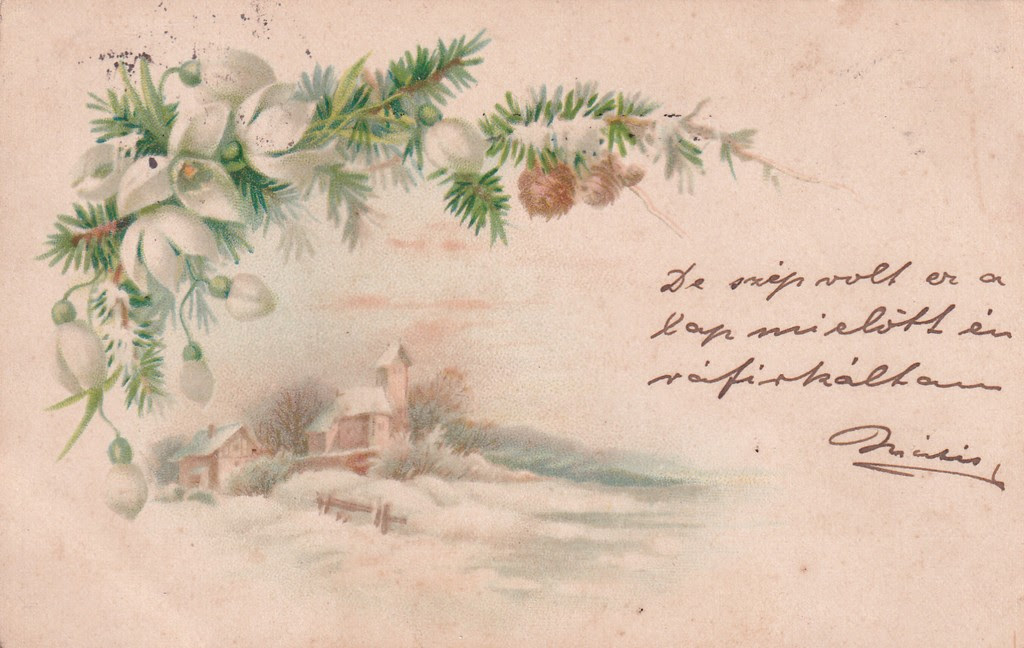 De szép volt ez a
lap mielőtt én
ráfirkáltam